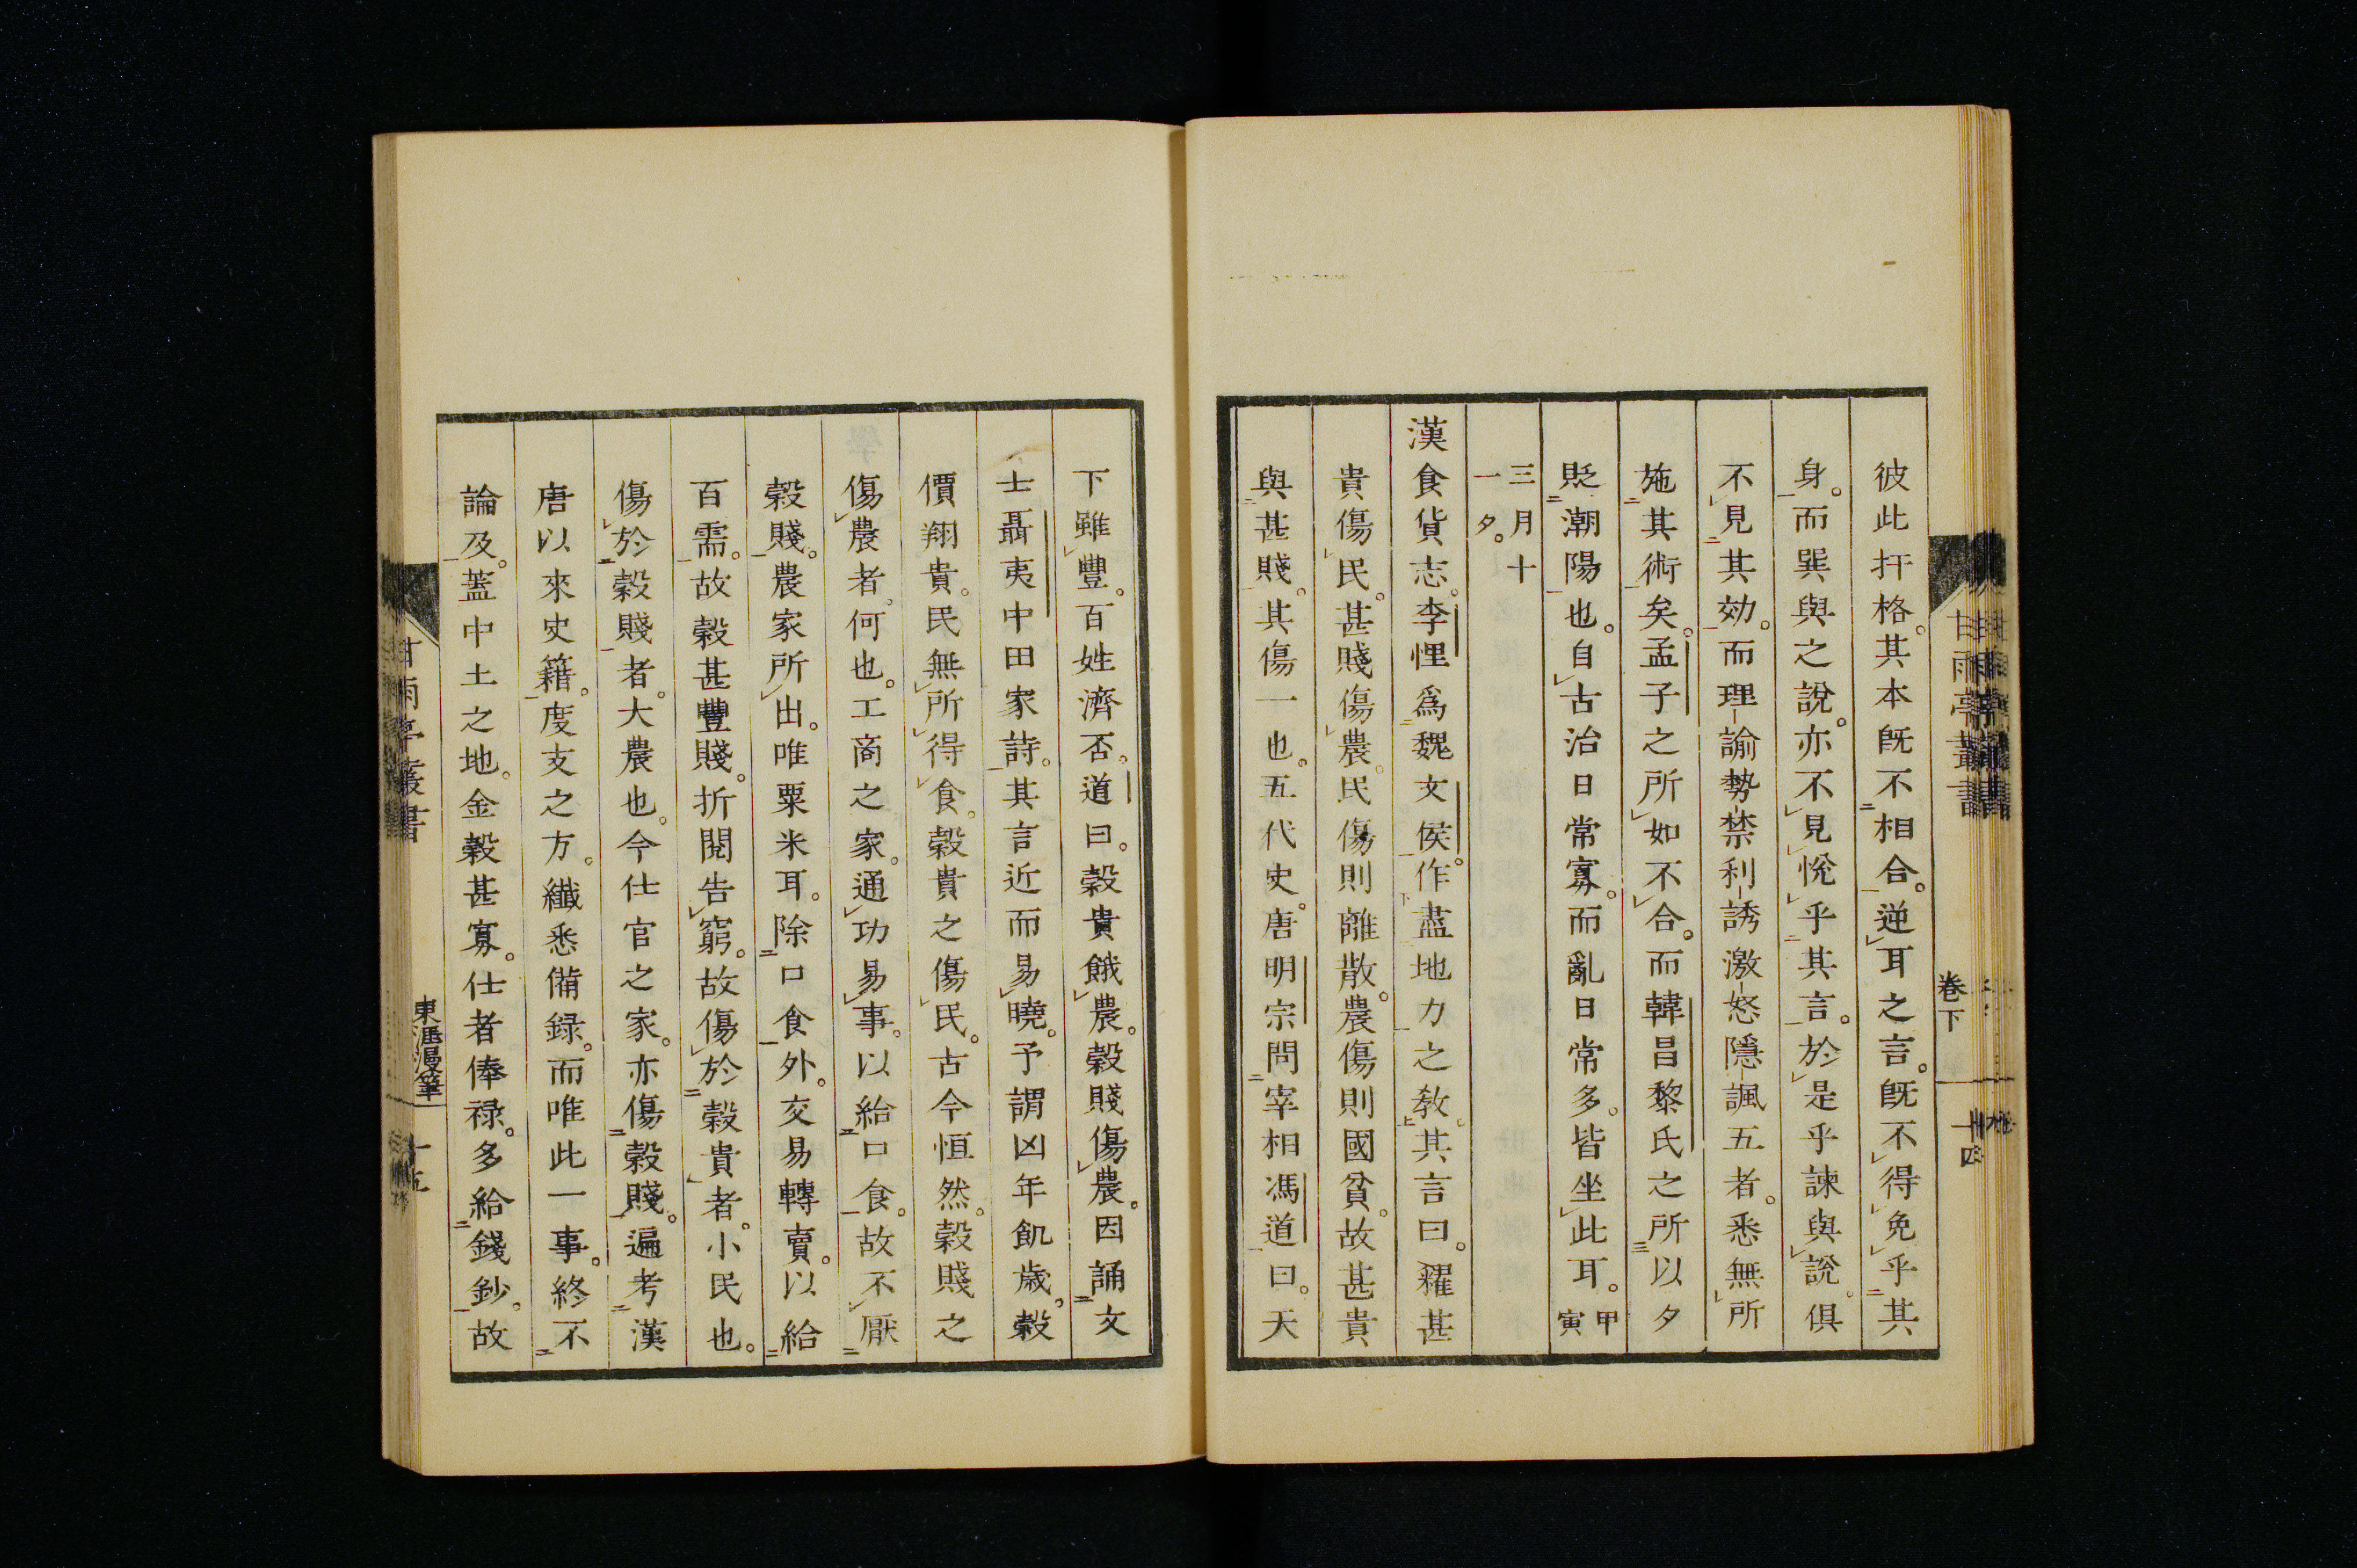 彼此扞格。其本既不相合。逆耳之言。既不得免乎其
身。而巽與之說。亦不見悅乎其言。於是乎諫與說。俱
不見其効。而理諭勢禁利誘激怒隱諷五者。悉無所
施其術矣。孟子之所如不合。而韓昌黎氏之所以夕
貶潮陽也。自古治日常寡。而亂日常多。皆坐此耳。甲寅
三月十一夕。
漢食貨志。李悝爲魏文侯。作盡地力之敎。其言曰。糴甚
貴傷民。甚賤傷農。民傷則離散。農傷則國貧。故甚貴
與甚賤。其傷一也。五代史。唐明宗問宰相馮道曰。天
甘雨亭叢書
卷下
十四
下雖豐。百姓濟否。道曰。穀貴餓農。穀賤傷農。因誦文
士聶夷中田家詩。其言近而易曉。予謂凶年飢歲。穀
價翔貴。民無所得食。穀貴之傷民。古今恒然。穀賤之
傷農者。何也。工商之家。通功易事。以給口食。故不厭
穀賤。農家所出。唯粟米耳。除口食外。交易轉賣。以給
百需。故穀甚豐賤。折閱告窮。故傷於穀貴者。小民也。
傷於穀賤者。大農也。今仕官之家。亦傷穀賤。遍考漢
唐以來史籍。度支之方。纖悉備録。而唯此一事。終不
論及。蓋中土之地。金穀甚寡。仕者俸禄。多給錢鈔。故
甘雨亭叢書
東涯漫筆
十五